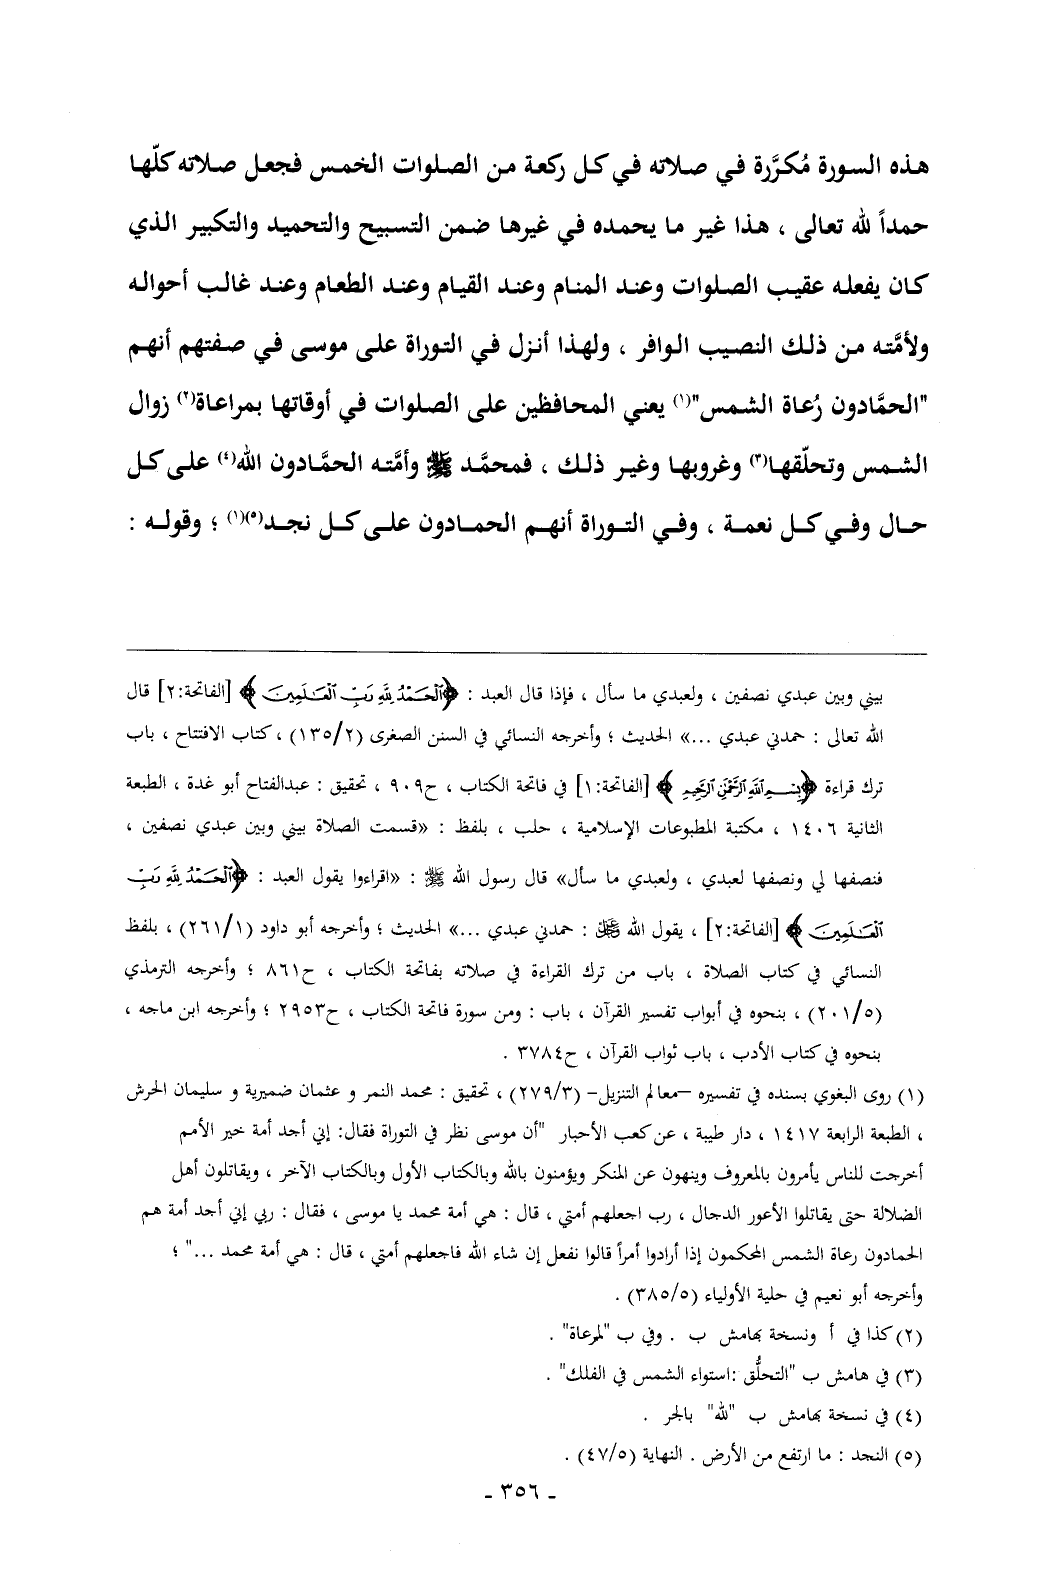 هذه السورة مُكرَّرة في صلاته في كل ركعة من الصلوات الخمس فجعل صلاته كلّها
حمداً لله تعالى ، هذا غير ما يحمده في غيرها ضمن التسبيح والتحميد والتكبير الذي
كان يفعله عقيب الصلوات وعند المنام وعند القيام وعند الطعام وعند غالب أحواله
ولأمَّته من ذلك النصيب الوافر ، ولهذا أنزل في التوراة على موسى في صفتهم أنهم
"الحمَّادون رُعاة الشمس"(١) يعني المحافظين على الصلوات في أوقاتها بمراعاة(٢) زوال
الشمس وتحلّقها(٣) وغروبها وغير ذلك ، فمحمَّد ﷺ وأمَّته الحمَّادون الله(٤) على كل
حال وفي كل نعمة ، وفي التوراة أنهم الحمادون على كل نجد(٥)(١) ؛ وقوله :
بيني وبين عبدي نصفين ، ولعبدي ما سأل ، فإذا قال العبد : ﴿ٱلۡحَمۡدُ لِلَّهِ رَبِّ ٱلۡعَٰلَمِينَ﴾ [الفاتحة:٢] قال
الله تعالى : حمدني عبدي ...» الحديث ؛ وأخرجه النسائي في السنن الصغرى (١٣٥/٢) ، كتاب الافتتاح ، باب
ترك قراءة ﴿بِسۡمِ ٱللَّهِ ٱلرَّحۡمَٰنِ ٱلرَّحِيمِ﴾ [الفاتحة:١] في فاتحة الكتاب ، ح٩٠٩ ، تحقيق : عبدالفتاح أبو غدة ، الطبعة
الثانية ١٤٠٦ ، مكتبة المطبوعات الإسلامية ، حلب ، بلفظ : «قسمت الصلاة بيني وبين عبدي نصفين ،
فنصفها لي ونصفها لعبدي ، ولعبدي ما سأل» قال رسول الله ﷺ : «اقراءوا يقول العبد : ﴿ٱلۡحَمۡدُ لِلَّهِ رَبِّ
ٱلۡعَٰلَمِينَ﴾ [الفاتحة:٢] ، يقول الله ﷻ : حمدني عبدي ...» الحديث ؛ وأخرجه أبو داود (٢٦١/١) ، بلفظ
النسائي في كتاب الصلاة ، باب من ترك القراءة في صلاته بفاتحة الكتاب ، ح٨٦١ ؛ وأخرجه الترمذي
(٢٠١/٥) ، بنحوه في أبواب تفسير القرآن ، باب : ومن سورة فاتحة الكتاب ، ح٢٩٥٣ ؛ وأخرجه ابن ماجه ،
بنحوه في كتاب الأدب ، باب ثواب القرآن ، ح٣٧٨٤ .
(١) روى البغوي بسنده في تفسيره –معالم التنزيل– (٢٧٩/٣) ، تحقيق : محمد النمر و عثمان ضميرية و سليمان الحرش
، الطبعة الرابعة ١٤١٧ ، دار طيبة ، عن كعب الأحبار "أن موسى نظر في التوراة فقال: إني أجد أمة خير الأمم
أخرجت للناس يأمرون بالمعروف وينهون عن المنكر ويؤمنون بالله وبالكتاب الأول وبالكتاب الآخر ، ويقاتلون أهل
الضلالة حتى يقاتلوا الأعور الدجال ، رب اجعلهم أمتي ، قال : هي أمة محمد يا موسى ، فقال : ربي إني أجد أمة هم
الحمادون رعاة الشمس المحكمون إذا أرادوا أمراً قالوا نفعل إن شاء الله فاجعلهم أمتي ، قال : هي أمة محمد ..." ؛
وأخرجه أبو نعيم في حلية الأولياء (٣٨٥/٥) .
(٢) كذا في أ ونسخة بهامش ب . وفي ب "لمرعاة" .
(٣) في هامش ب "التحلُّق :استواء الشمس في الفلك" .
(٤) في نسخة بهامش ب "لله" بالجر .
(٥) النجد : ما ارتفع من الأرض . النهاية (٤٧/٥) .
- ٣٥٦ -